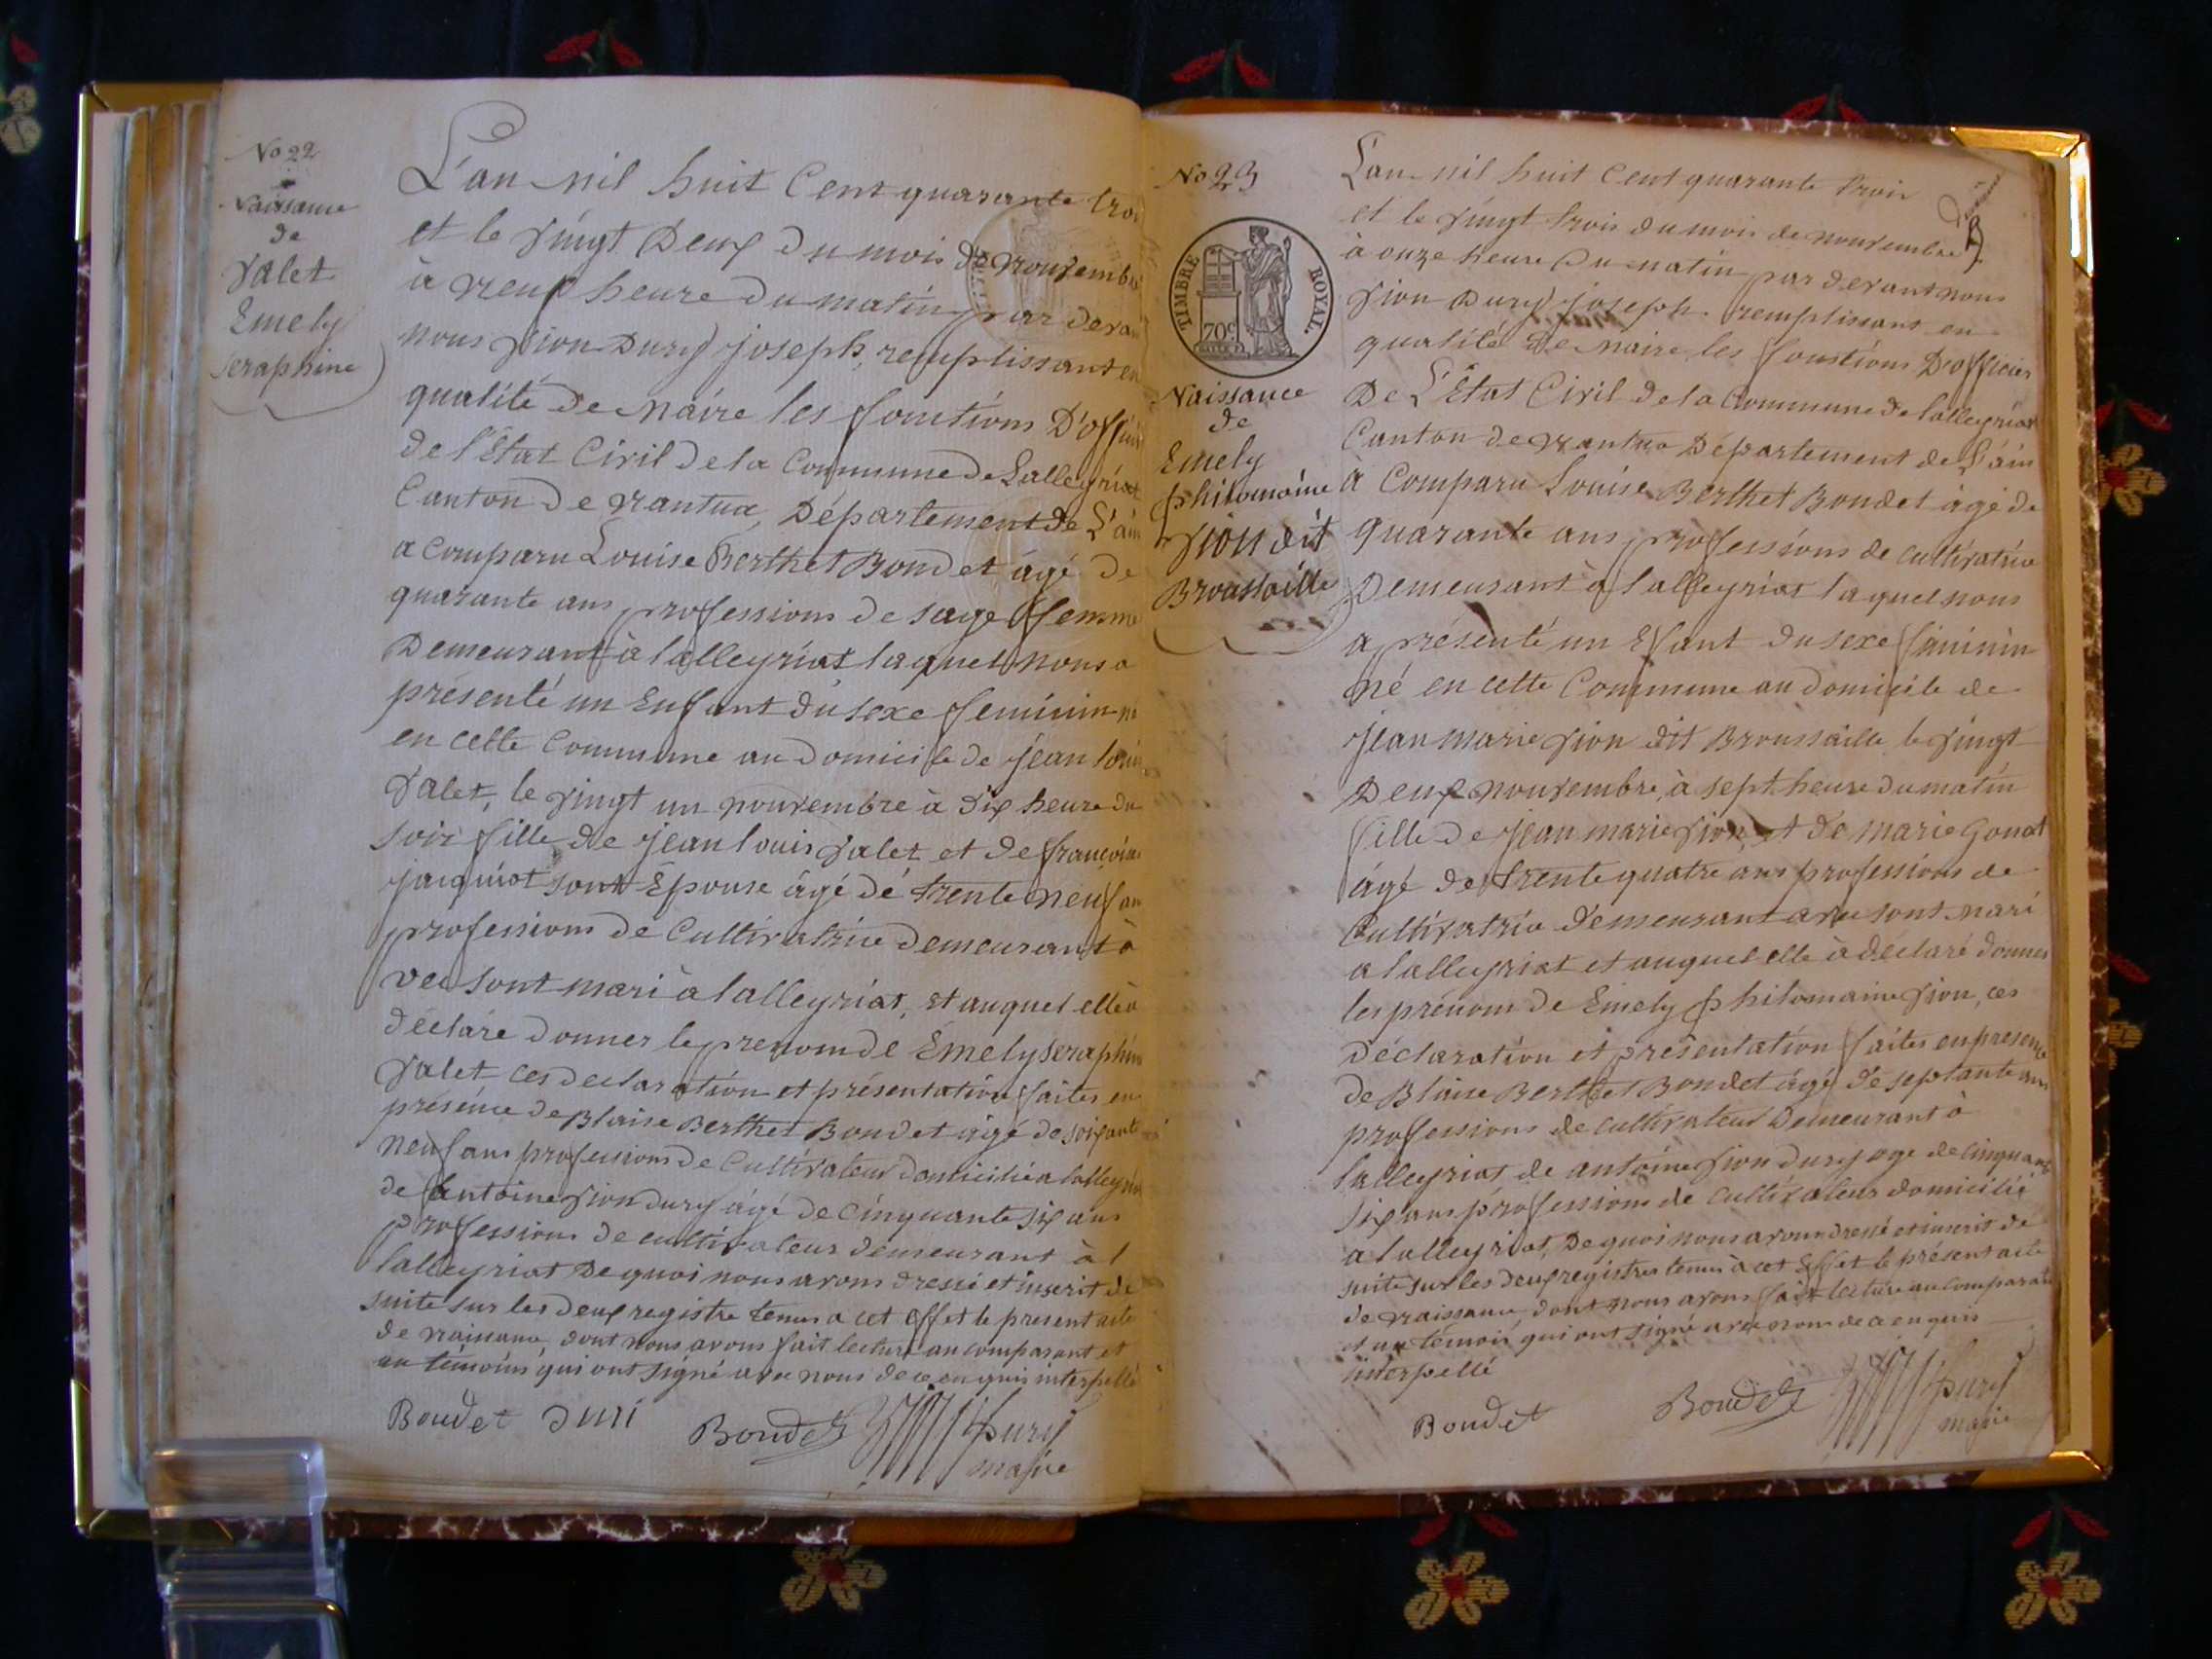 No 22
Naissance
de
Valet
Emely
seraphine
L'an mil huit Cent quarante troi
et le Vingt Deux du mois de novembre
à neuf heure du matin par deva
nous Vion Dury joseph, remplissant en
qualité de Maire les fonctions D'offici
de l'Etat Civil de la Commune de Lalleyriat
Canton de nantua, Département de L'ain
a comparu Louise Berthet Bondet âgé de
quarante ans professions de sage femme
Demeurant à lalleyriat laquel nous a
présenté un Enfant du sexe feminin né
en cette Commune au Domicile de jean loui
Valet, le Vingt un novembre à dix heure du
soir fille de jean louis Valet et de francoise
jacquiot sont Epouse âgé dé trente neuf an
professions de Cultivatrice demeurant à
vec sont mari à lalleyriat, et auquel elle à
déclaré donner le prenom de Emely seraphin
Valet ces declaration et présentation faites en
présence de Blaise Berthet Boudet âgé de soixante
neuf ans professions de Cultivateur domicilié a lalleyriat
de antoine Vion dury âgé de Cinquante six ans
professions de cultivateur demeurant à l
lalleyriat De quoi nous avons dressé et inscrit de
suite sur les deux registre tenus a cet Effet le present acte
de naissance, dont nous avons fait lecture au comparant et
au témoins qui ont signé avec nous de ce en quis interpellé
Boudet duri Boudet Dury
maire
No 23
TIMBRE ROYAL.
70c
Naissance
de
Emely
philomaine
Vion dit
Broussaille
L'an mil huit Cent quarante trois
et le Vingt trois du mois de novembre
à onze heure Du matin par devant nous
Vion Dury joseph remplissant en
qualité de maire les fonctions D'officier
De L'Etat Civil de la Commune de lalleyriat
Canton de nantua Département de L'ain
à Comparu Louise Berthet Bondet âgé de
quarante ans professions de cultivatrice
Demeurant à lalleyriat laquel nous
a présenté un Efant du sexe féminin
né en cette Commune au domicile de
jean marie Vion dit Broussaille le Vingt
Deux novembre, à sept heure du matin
fille de jean marie Vion et de marie Gonat
âgé de trente quatre ans professions de
Cultivatrice demeurant avec sont mari
a lalleyriat et auquel elle à déclaré donner
les prénom de Emely philomaine Vion, ces
déclaration et présentation faites en presence
de Blaise Berthet Bondet âgé de septante ans
professions de cultivateur Demeurant à
lalleyriat de antoine Vion dury age de cinquante
six ans professions de cultivateur domicilié
a lalleyriat, De quoi nous avons dressé et inscrit de
suite sur les deux registres tenus à cet Effet le présent acte
de naissance, dont nous avons fait lecture au comparant
et au témoin qui ont signé avec nous de ce en quis
interpellé
Boudet Boudet Dury
maire